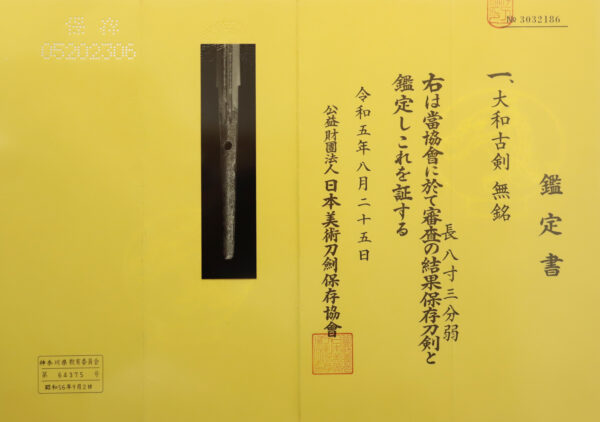 № 3032186
鑑定書
一、大和古剣 無銘
長 八寸三分弱
右は當協會に於て審査の結果保存刀剣と
鑑定しこれを証する
令和五年八月二十五日
公益財團法人 日本美術刀劍保存協會
保存
05202306
神奈川県教育委員会
第 64375 号
昭和56年9月2日